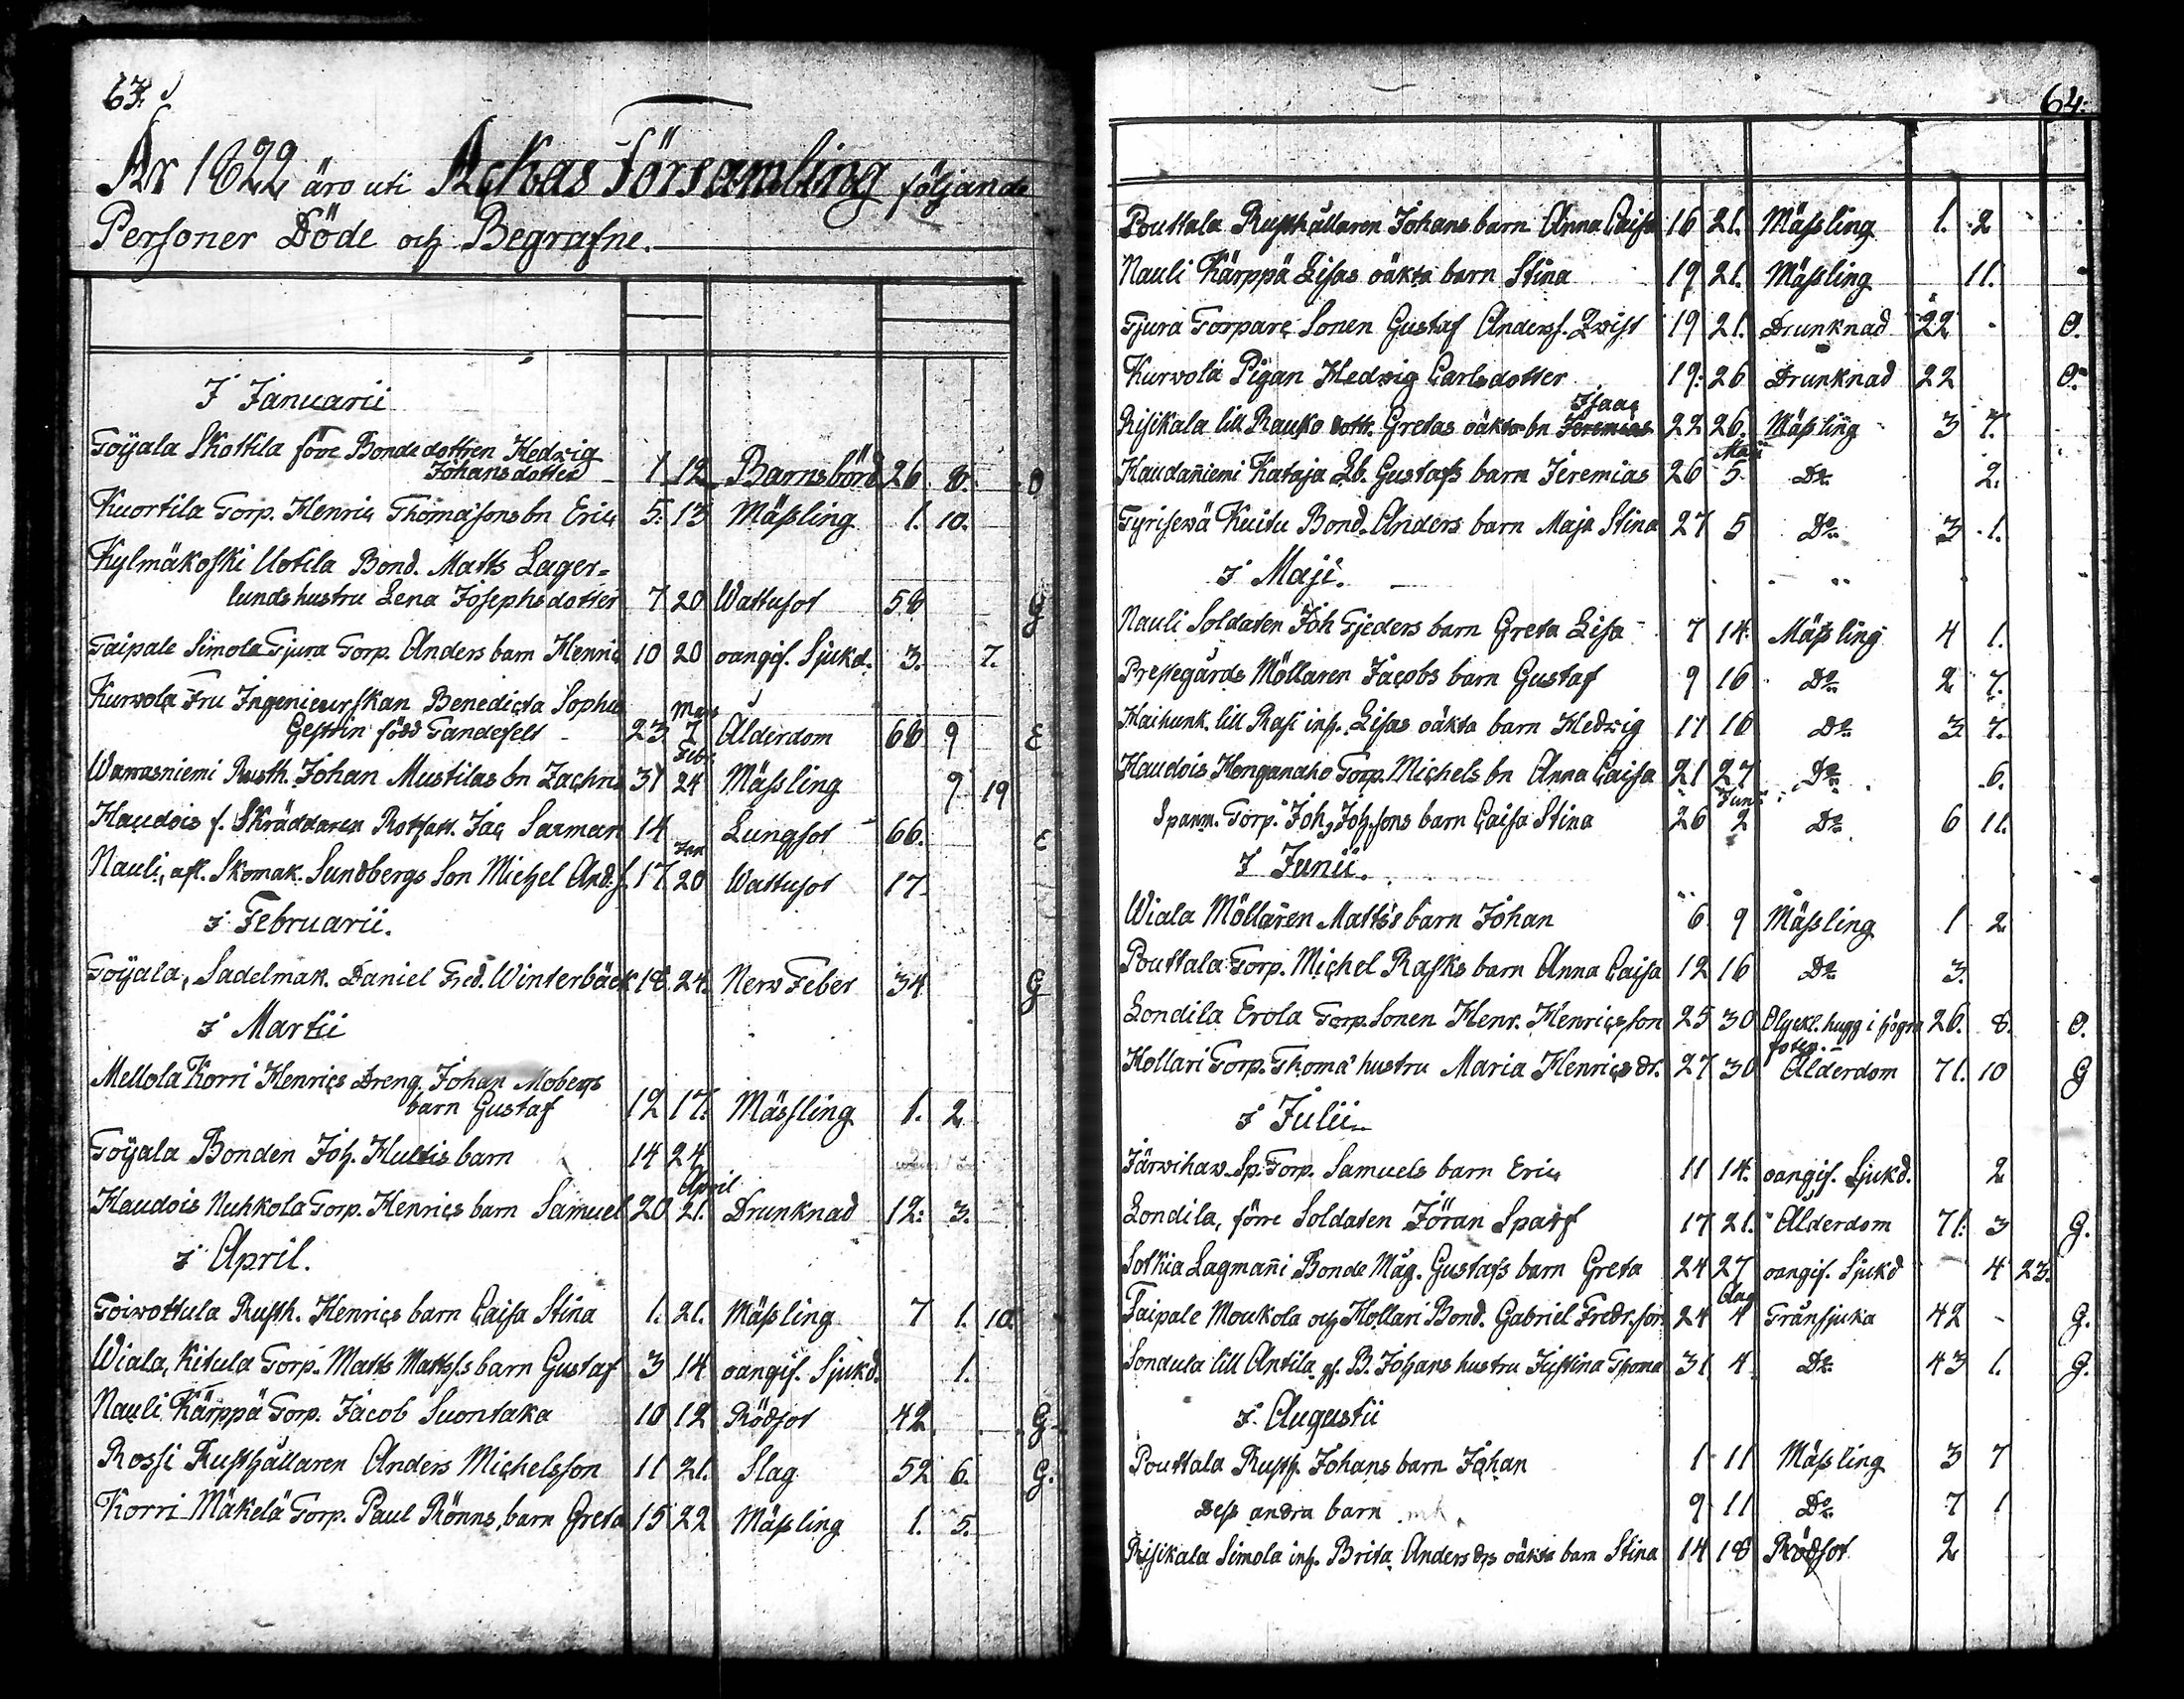 63.
År 1822 äro uti Ackas Församling följande
Personer Döde och Begrafne.
I Januarii
Toijala Skottila före Bondedottren Hedvig
Johansdotter 1 12 Barnsbörd 26 8. O
Kuortila Torp. Henric Thomassons bn Eric 5. 13 Mässling 1. 10.
Kylmäkoski Uotila Bond. Matts Lager=
lunds hustru Lena Josephsdotter 7 20 Wattusot 58 G
Taipale Simola Tjura Torp. Anders barn Henric 10 20 oangif. Sjukd. 3. 7.
Kurvola Fru Ingenieurskan Benedicta Sophia
Mars
Gestrin född Tandefelt 23 1 Ålderdom 68 9 E
Febr.
Warvasniemi Rusth. Johan Mustilas bn Zachris 31 24 Mässling 9 19
Haudois f. Skräddaren Rotfatt. Jac Saxman 14 Lungsot 66. E
Jan
Nauli, afl. Skomak. Sundbergs Son Michel And.s. 17 20 Wattusot 17.
i Februarii.
Toijala, Sadelmak. Daniel Fred. Winterbäck 18. 24. Nerv Feber 34 G
i Martii
Mellola Korri Henrics Dreng. Johan Mobergs
barn Gustaf 12 17. Mässling 1. 2
Toijala Bonden Joh. Hultis barn 14 24
April
Haudois Nuhkola Torp. Henrics barn Samuel 20 21. Drunknad 12. 3.
i April.
Toivottula Rusth. Henrics barn Caisa Stina 1. 21. Mässling 7 1. 10.
Wiala, Kitula Torp. Matts Mattss. barn Gustaf 3 14 oangif. Sjukd. 1.
Nauli Kärppä Torp. Jacob Suontaka 10 12 Rödsot 42. G
Rossi Rusthållaren Anders Michelsson 11 21. Slag 52 6. G.
Korri Mäkelä Torp. Paul Rönns, barn Greta 15 22 Mässling 1. 5.
64.
Pouttala Rusthållaren Johans barn Anna Caisa 16 21. Mässling 1. 2
Nauli Kärppä Lisas oäkta barn Stina 19 21. Mässling 11.
Tjura Torpare Sonen Gustaf Anderss. Qwist 19 21. Drunknad 22 - O.
Kurvola Pigan Hedvig Carlsdotter 19. 26 Drunknad 22 O.
Isaac
Risikala lill Rauko dottr. Gretas oäkta bn Jeremias 22 26. Mässling 3 7.
Maji
Haudaniemi Kataja Lb. Gustafs barn Jeremias 26 5. Do 2.
Tyrisevä Kuitu Bond. Anders barn Maja Stina 27 5 Do 3 1.
i Maji.
Nauli Soldaten Joh Tjeders barn Greta Lisa 7 14. Mässling 4 1.
Prestegårds Möllaren Jacobs barn Gustaf 9 16 Do 2 7.
Kaihunk. lill Rasi inh. Lisas oäkta barn Hedvig 11 16 Do 3 7.
Haudois Honganaho Torp. Michels bn Anna Caisa 21 27 Do 6.
Junii
Spanm. Torp. Joh, Joh.sons barn Caisa Stina 26 2 Do 6 11.
i Junii.
Wiala Möllaren Mattss barn Johan 6 9 Mässling 1 2
Pouttala Torp. Michel Rasks barn Anna Caisa 12 16 Do 3.
Londila Erola Torp. Sonen Henr. Henricsson 25 30 Olyckl. hugg i högra 26. 8. O.
foten.
Kollari Torp. Thoma hustru Maria Henricsdr. 27 30 Ålderdom 71. 10 G
i Julii
Järvihav. Sp. Torp. Samuels barn Eric 11 14. oangif. Sjukd. 2
Londila, förre Soldaten Jöran Sparf 17 21. Ålderdom 71. 3 G.
Sotkia Lagmanni Bonde Måg. Gustafs barn Greta 24 27 oangif. Sjukd 4 23.
Aug
Taipale Moukola och Kollari Bond. Gabriel Fredr.son 24 4 Trånsjuka 42 - G.
Sonduta lill Antila gf. B. Johans hustru Justina Thoma 31 4. Do 43 1. G.
i Augustii
Pouttala Rusth. Johans barn Johan 1 11 Mässling 3 7
dess andra barn 9 11 Do 7 1
Risikala Simola inh. Brita Andersdrs oäkta barn Stina 14 18 Rödsot 2